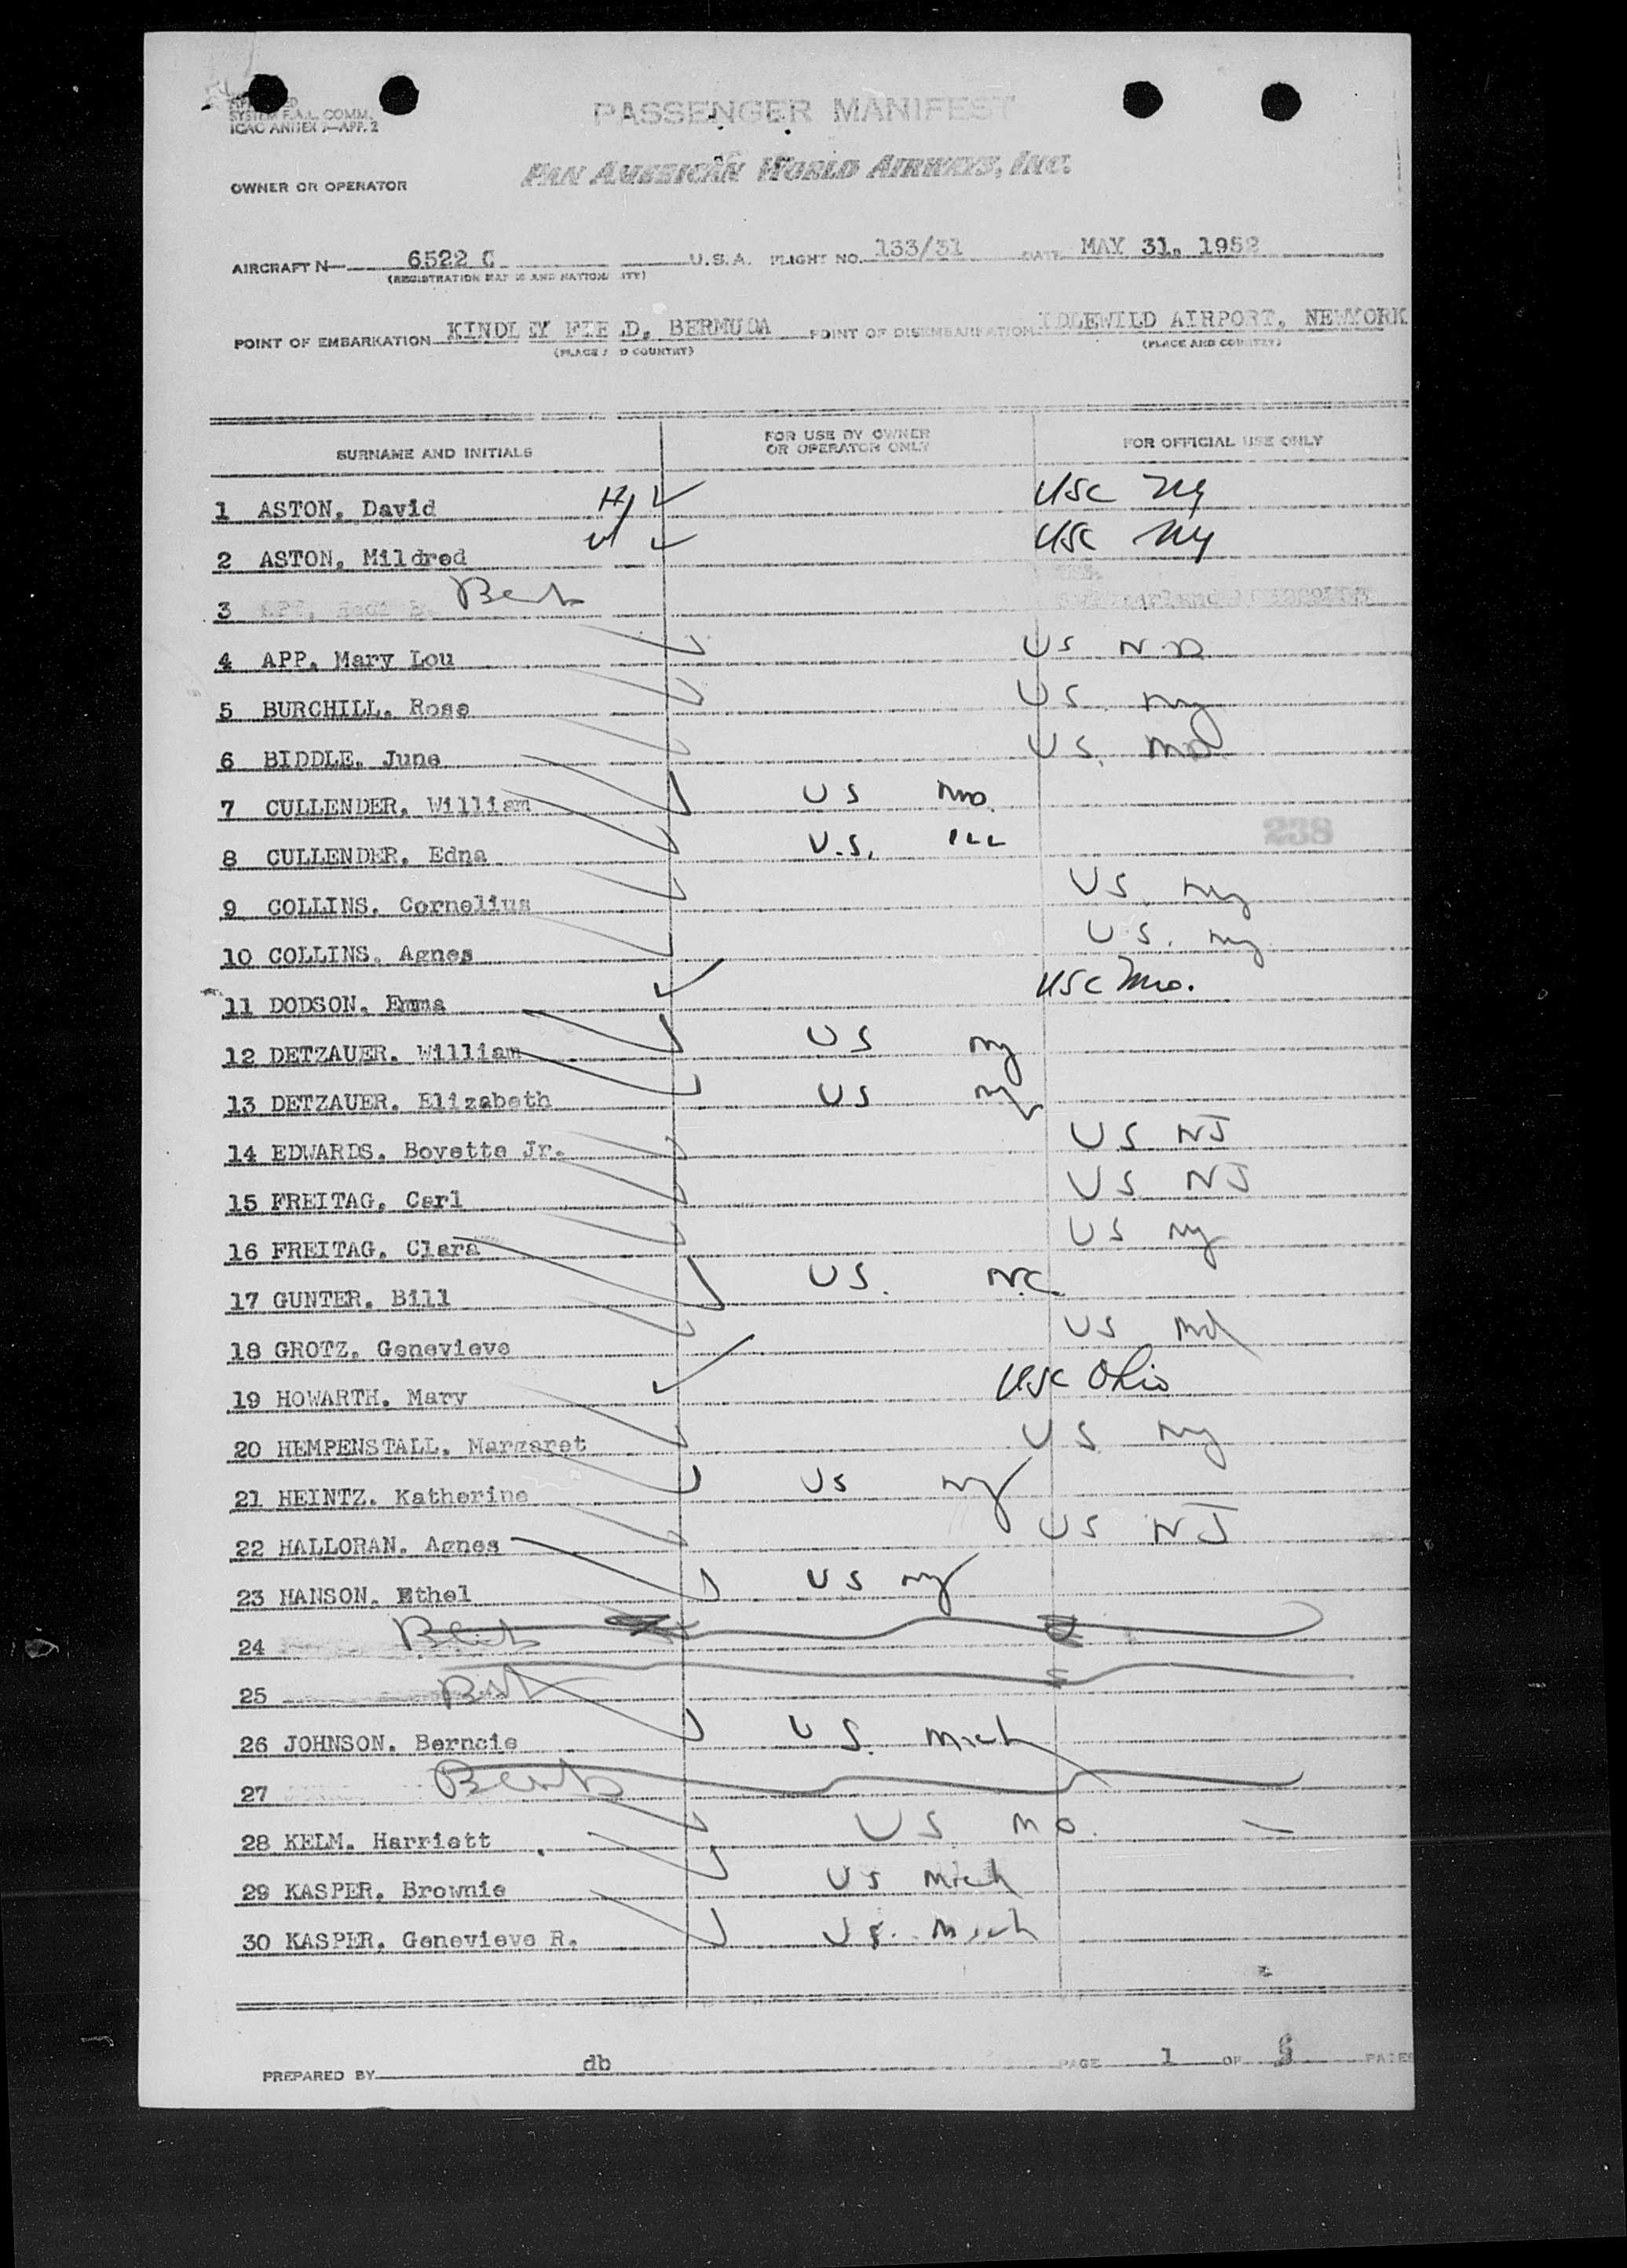 SYSTEM F.A.L. COMM.
ICAO ANNEX APP. 2
PASSENGER MANIFEST
PAN AMERICAN WORLD AIRWAYS, INC.
OWNER OR OPERATOR
AIRCRAFT N 6522 C U.S.A. FLIGHT NO. 133/31 DATE MAY 31, 1952
(REGISTRATION MARKS AND NATIONALITY)
POINT OF EMBARKATION KINDLEY FIELD, BERMUDA POINT OF DISEMBARKATION IDLEWILD AIRPORT, NEWYORK
(PLACE AND COUNTRY) (PLACE AND COUNTRY)
SURNAME AND INITIALS FOR USE BY OWNER OR OPERATOR ONLY FOR OFFICIAL USE ONLY
1 ASTON, David H/ USC NY
2 ASTON, Mildred W USC NY
3
4 APP, Mary Lou US N.D
5 BURCHILL, Rose US NY
6 BIDDLE, June US. MD
7 CULLENDER, William US Mo.
8 CULLENDER, Edna U.S. ILL
238
9 COLLINS, Cornelius US. NY
10 COLLINS, Agnes U.S. NY
11 DODSON, Emma USC Mo.
12 DETZAUER, William US NY
13 DETZAUER, Elizabeth US NY
14 EDWARDS, Boyette Jr. US NJ
15 FREITAG, Carl US NJ
16 FREITAG, Clara US NY
17 GUNTER, Bill US. N.C.
18 GROTZ, Genevieve US Md
19 HOWARTH, Mary USC Ohio
20 HEMPENSTALL, Margaret US NY
21 HEINTZ, Katherine US NY
22 HALLORAN, Agnes US NJ
23 HANSON, Ethel US NY
24
25
26 JOHNSON, Berncie US. Mich
27
28 KELM, Harriett US Mo.
29 KASPER, Brownie US Mich
30 KASPER, Genevieve R. US. Mich
PREPARED BY db PAGE 1 OF PAGES